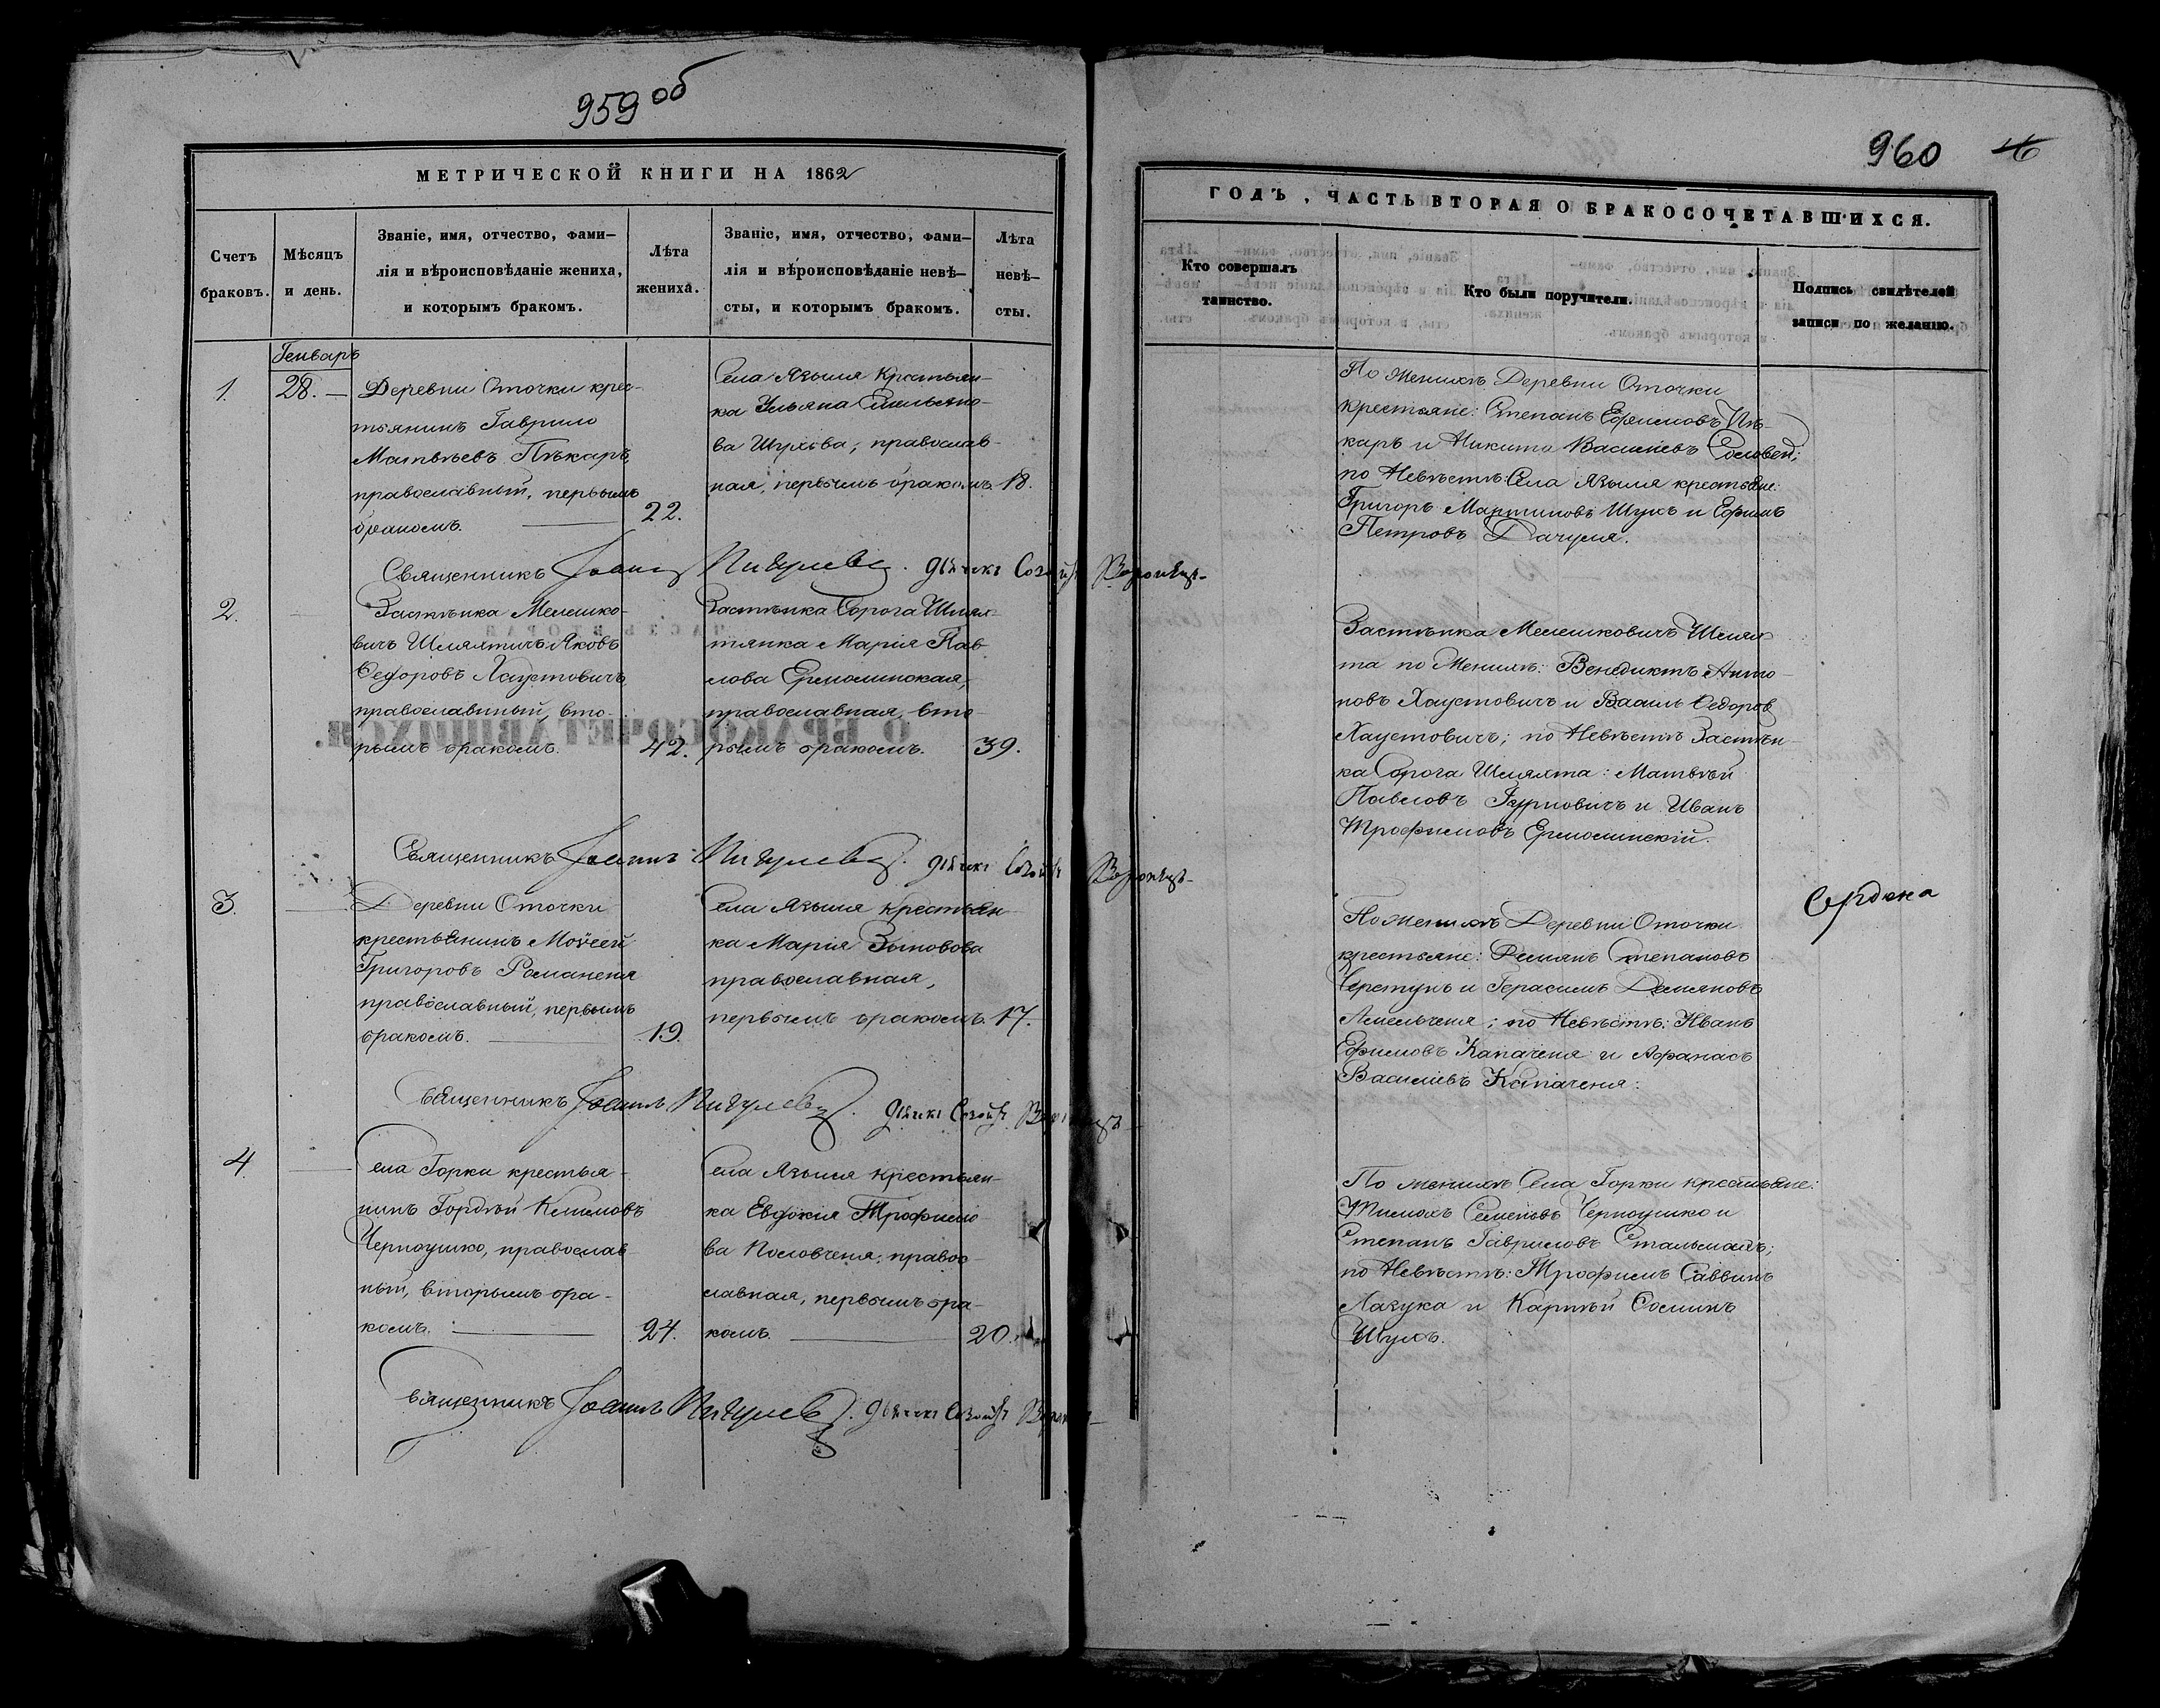 959 об
МЕТРИЧЕСКОЙ КНИГИ НА 1862
Счетъ браковъ.
Мѣсяцъ и день.
Званіе, имя, отчество, фами-
лія и вѣроисповѣданіе жениха,
и которымъ бракомъ.
Лѣта жениха.
Званіе, имя, отчество, фами-
лія и вѣроисповѣданіе невѣ-
сты, и которымъ бракомъ.
Лѣта невѣ-
сты.
Генваръ
1.
28.
Деревни Оточки крес-
тьянинъ Гаврило
Матвѣевъ Пѣкаръ,
православный, первымъ
бракомъ.
22.
Села Языля Крестьян-
ка Ульяна Емельяно-
ва ; православ-
ная, первымъ бракомъ.
18.
Священникъ Іоаннъ дьячекъ
2.
Застѣнка Мелешко-
вичъ Шляхтичъ Яковъ
Ѳедоровъ Хаустовичъ,
православный, вто-
рымъ бракомъ.
42.
Застѣнка Сорога Шлях-
тянка Марія Пав-
лова Ермолинская,
православная, вто-
рымъ бракомъ.
39.
Священникъ Іоаннъ дьячекъ
3.
Деревни Оточки
крестьянинъ Моѵсей
Григоровъ Романеня
православный, первымъ
бракомъ.
19.
Села Языля крестьян-
ка Марія
православная,
первымъ бракомъ.
17.
Священникъ Іоаннъ дьячекъ
4.
Села Горки крестья-
нинъ Гордѣй Климовъ
Черноушко, православ-
ный, вторымъ бра-
комъ.
24.
Села Языля крестьян-
ка Евдокія Трофимо-
ва , правос-
лавная, первымъ бра-
комъ.
20.
Священникъ Іоаннъ дьячекъ
960
ГОДЪ, ЧАСТЬ ВТОРАЯ О БРАКОСОЧЕТАВШИХСЯ.
Кто совершалъ
таинство.
Кто были поручители.
Подпись свидѣтелей
записи по желанію.
По Женихѣ Деревни Оточки
крестьяне: Степанъ Ефимовъ Пѣ-
каръ и Никита Васильевъ
по Невѣстѣ: Села Языля крестьяне:
Григоръ Мартиновъ и Ефимъ
Петровъ Дачуля.
Застѣнка Мелешковичъ Шлях-
та по Женихѣ: Венедиктъ Анто-
новъ Хаустовичъ и Василь Ѳедоровъ
Хаустовичъ; по Невѣстѣ Застѣн-
ка Сорога Шляхта: Матвѣй
Павловъ и Иванъ
Трофимовъ Ермолинскій.
По Женихѣ Деревни Оточки
крестьяне: Степановъ
и Герасимъ Демяновъ
Амельченя; по Невѣстѣ: Иванъ
Ефимовъ Капаченя и Афанасъ
Васильевъ Капаченя.
По женихѣ Села Горки крестьяне:
Семеновъ Черноушко и
Степанъ Гавриловъ Стальмахъ;
по Невѣстѣ: Трофимъ Саввинъ
Лазука и